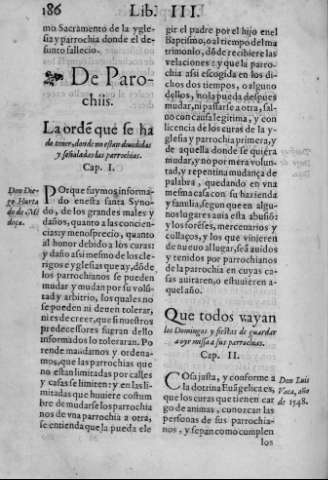 186
Lib. III.
mo Sacramento de la ygle-
sia y parrochia donde el de-
funto fallecio.
De Paro-
chiis.
La ordē que se ha
de tener, donde no estan diuididas
y señaladas las parrochias.
Cap. I.
Don Die-
go Hurta
do de Mē
doça.
POrque fuymos informa-
do enesta santa Syno-
do, de los grandes males y
daños, quanto a las concien-
cias: y menosprecio, quanto
al honor debido a los curas:
y daño asi mesmo de los cle-
rigos e yglesias que ay, dōde
los parrochianos se pueden
mudar y mudan por su volū-
tad y arbitrio, los quales no
se pueden ni deuen tolerar,
ni es de creer, que si nuestros
predecessores fueran dello
informados lo toleraran. Po
rende mandamos y ordena-
mos, que las parrochias que
no estan limitadas por calles
y casas se limiten: y en las li-
mitadas que huuiere costum
bre de mudarse los parrochia
nos de vna parrochia a otra,
se entienda que la pueda ele
gir el padre por el hijo enel
Baptismo, o al tiempo del ma
trimonio, dōde recibierē las
velaciones: y que la parro-
chia asi escogida en los di-
chos dos tiempos, o alguno
dellos, no la pueda despues
mudar, ni passarse a otra, sal-
uo con causa legitima, y con
licencia de los curas de la y-
glesia y parrochia primera, y
de aquella donde se quiera
mudar, y no por mera volun-
tad, y repentina mudança de
palabra, quedando en vna
mesma casa con su hazienda
y familia, segun que en algu-
nos lugares auia esta abusiō:
y los foréses, mercenarios y
collaços, y los que vinieren
de nueuo al lugar, seā auidos
y tenidos por parrochianos
de la parrochia en cuyas ca-
sas auitaren, o estuuieren a-
quel año.
Que todos vayan
los Domingos y fiestas de guardar
a oyr missa a sus parrochias.
Cap. II.
COsa justa, y conforme a
la dotrina Euāgelica es,
que los curas que tienen car
go de animas, conozcan las
personas de sus parrochia-
nos, y sepan como cumplen
los
Don Luis
Vaca, año
de 1548.